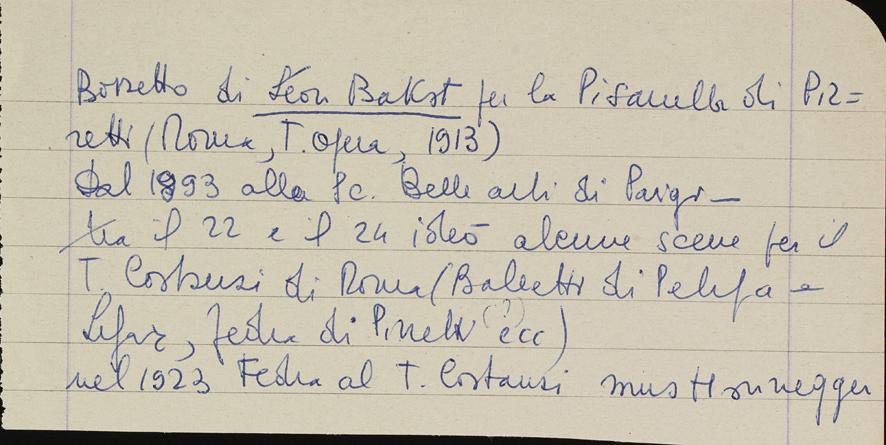 Bozzetto di Léon Bakst per la Pisanella di Piz=
zetti (Roma, T. Opera, 1913)
Dal 1893 alla Sc. Belle arti di Parigi —
tra il 22 e il 24 ideò alcune scene per il
T. Costanzi di Roma (Balletti di e
Lifar, Fedra di Pizzetti (?) ecc)
nel 1923 Fedra al T. Costanzi mus Honnegger